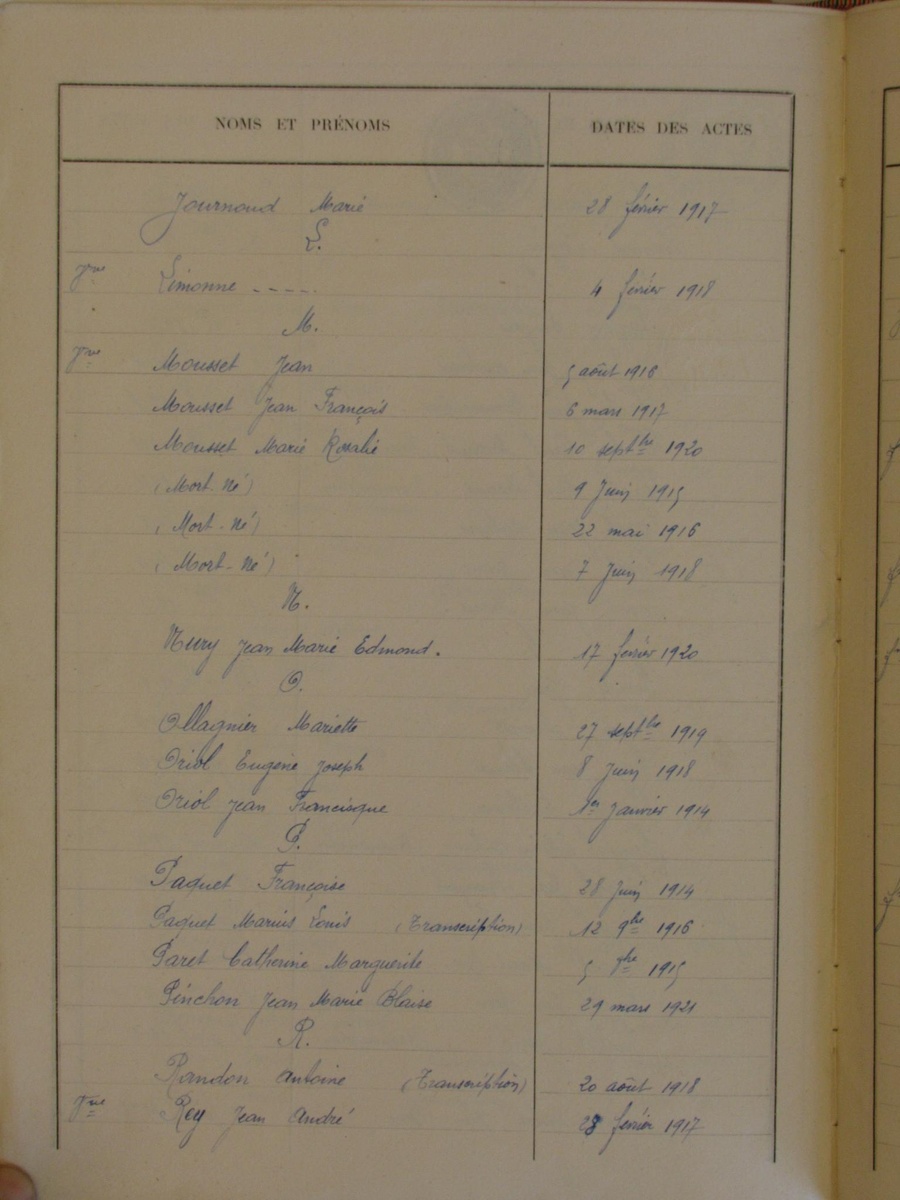 NOMS ET PRÉNOMS DATES DES ACTES
Journoud Marie 28 février 1917
L.
Limonne ----. 4 février 1918
M.
Mousset Jean 5 août 1916
Mousset Jean François 6 mars 1917
Mousset Marie Rosalie 10 septbre 1920
(Mort-Né) 9 Juin 1915
(Mort-Né) 22 mai 1916
(Mort-Né) 7 Juin 1918
N.
Nury Jean Marie Edmond. 17 février 1920
O.
Ollagnier Mariette 27 septbre 1919
Oriol Eugène Joseph 8 Juin 1918
Oriol Jean Francisque 1er Janvier 1914
P.
Paquet Françoise 28 Juin 1914
Paquet Marius Louis (Transcription) 12 9bre 1916
Paret Catherine Marguerite 5 1915
Pinchon Jean Marie Blaise 29 mars 1921
R.
Randon Antoine (Transcription) 20 août 1918
Rey Jean André 28 février 1917